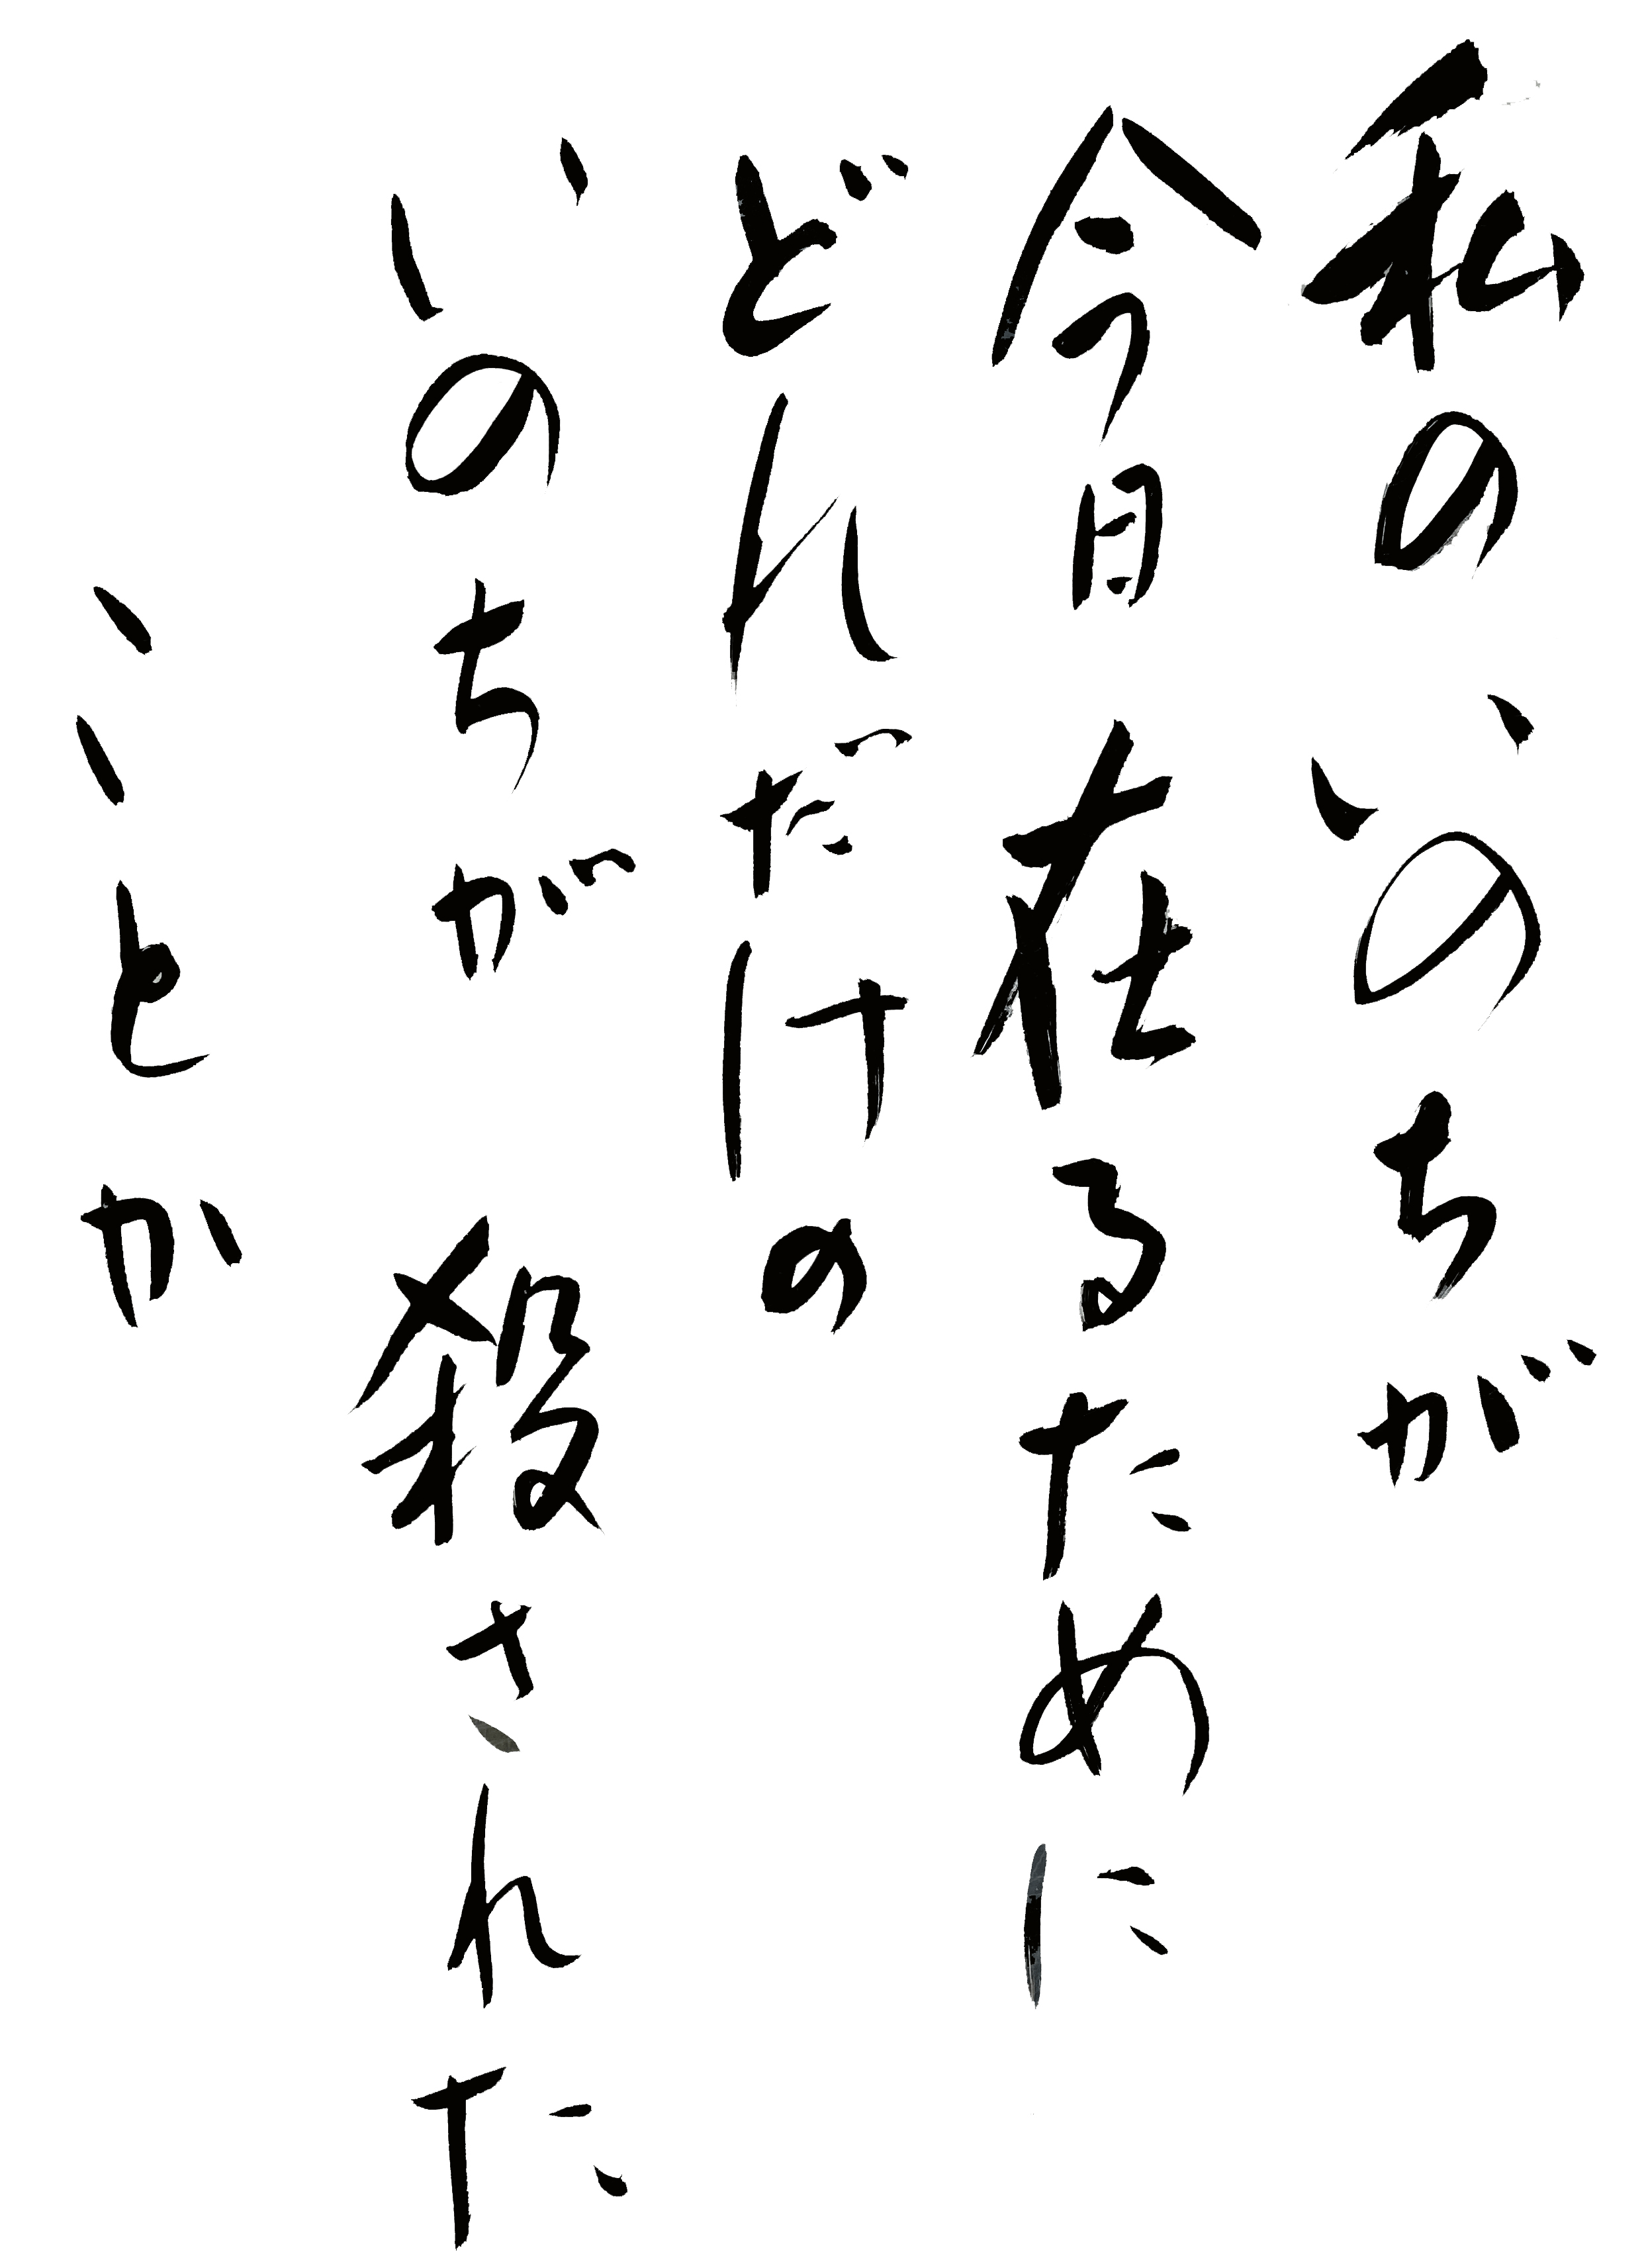 私のいのちが
今日在るために
どれだけの
いのちが殺された
ことか